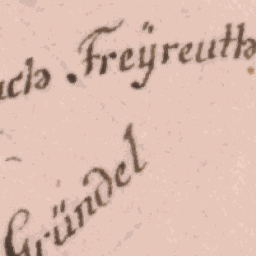 Freÿreuth
Gründel